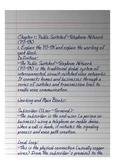 Chapter 1: Public Switched Telephone Network
(PSTN)
1. Explain the PSTN and explain the working of
each block.
Definition:
The Public Switched Telephone Network
(PSTN) is the traditional global system of
interconnected circuit-switched voice networks.
It connects homes and businesses through a
series of switches and transmission lines to
enable voice communication.
Working and Main Blocks:
Subscriber (User Terminal):
The subscriber is the end user (a person or
business) using a telephone or mobile device.
When a call is made, it initiates the signaling
process and sends path creation.
Local Loop:
This is the physical connection (usually copper
wires) from the subscriber's premises to the